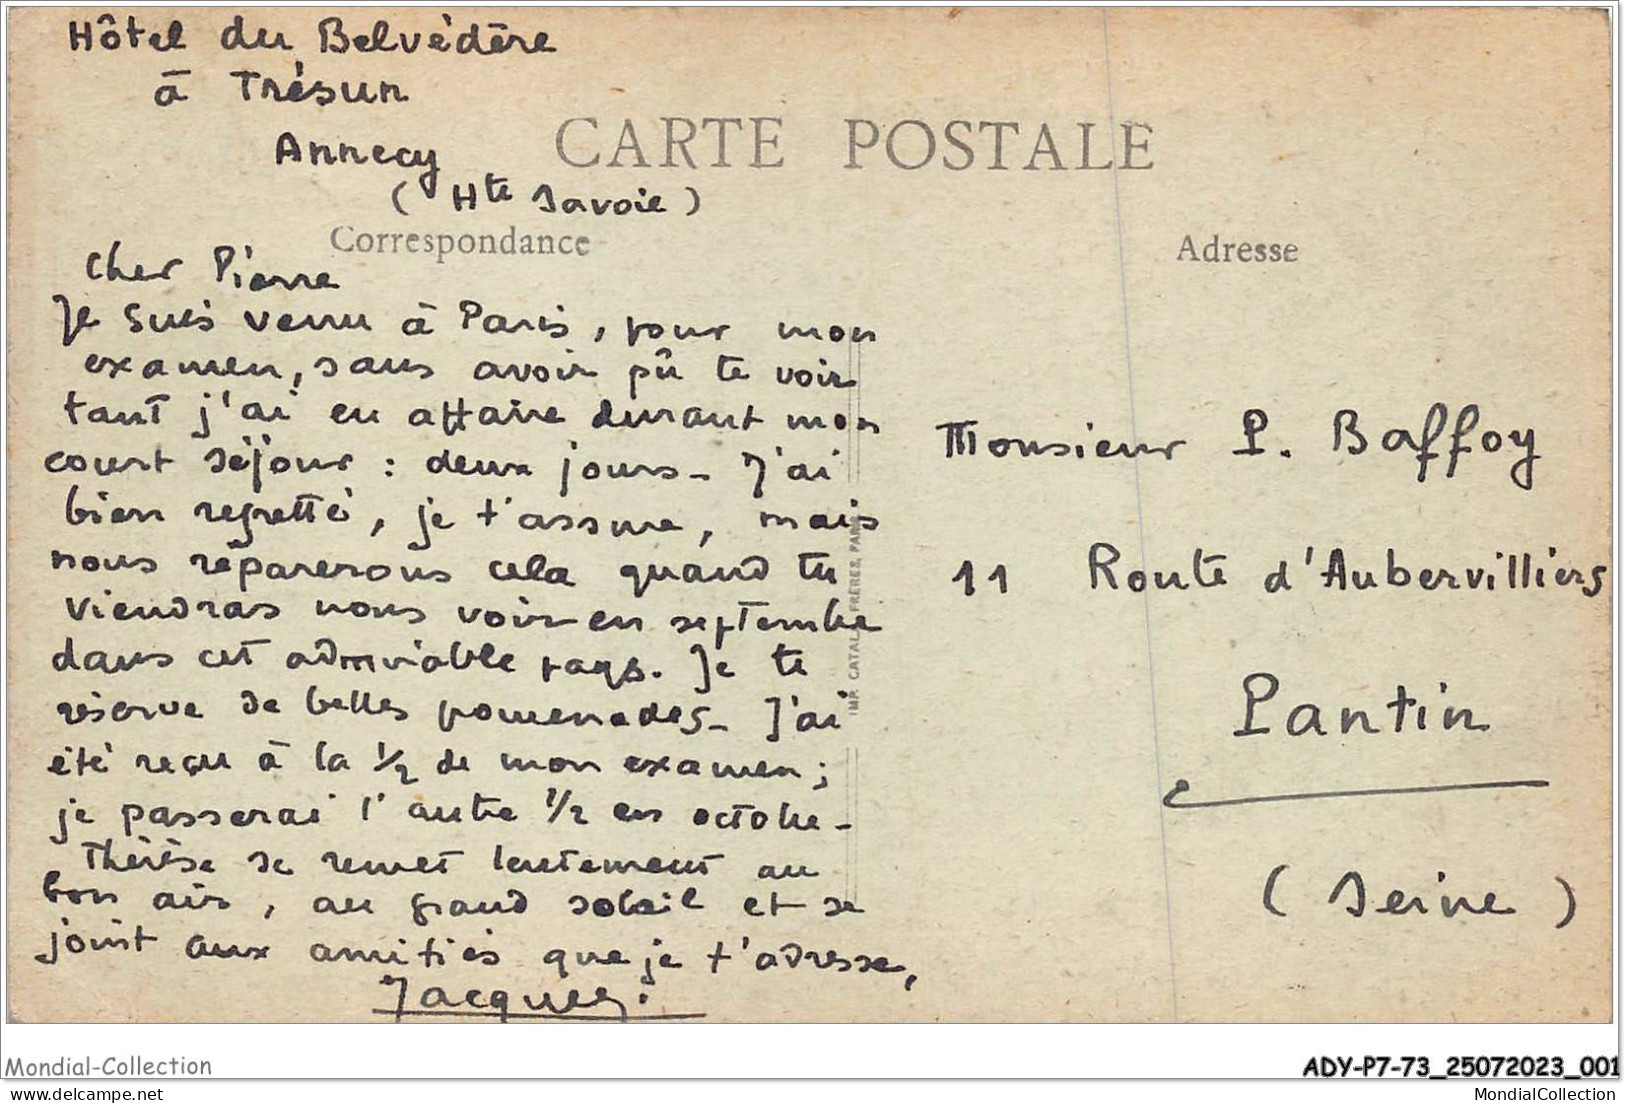 Hôtel du Belvédère
à Trésun
Annecy
(Hte Savoie)
CARTE POSTALE
Correspondance
Adresse
Cher Pierre
Je suis venu à Paris, pour mon
examen, sans avoir pû te voir
tant j'ai eu affaire durant mon
court séjour : deux jours - J'ai
bien regretté, je t'assure, mais
nous réparerons cela quand tu
viendras nous voir en septembre
dans cet admirable pays. Je te
réserve de belles promenades - J'ai
été reçu à la 1/2 de mon examen ;
je passerai l'autre 1/2 en octobre -
Thérèse se remet lentement au
bon air, au grand soleil et se
joint aux amitiés que je t'adresse,
Jacques.
IMP. CATALA FRÈRES, PARIS
Monsieur P. Baffoy
11 Route d'Aubervilliers
Pantin
(Seine)
Mondial-Collection
ADY-P7-73_25072023_001
www.delcampe.net
MondialCollection